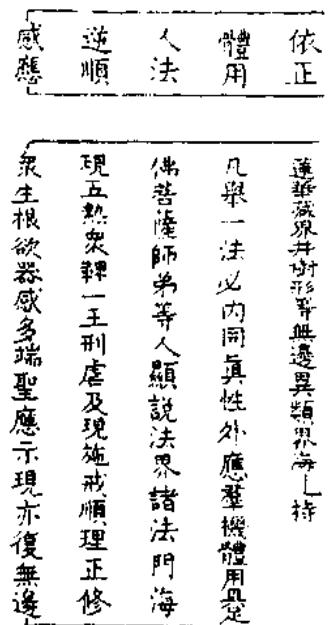 依正
蓮華藏界并樹形等無邊異類界海持
體用
凡舉一法必内同眞性外應羣機體用具足
人法
佛菩薩師弟等人顯説法界諸法門海
逆順
現五熱衆鞞一王刑虐及現施戒順理正修
感應
衆生根欲器感多端聖應示現亦復無邊